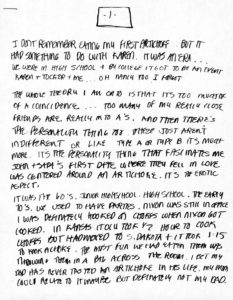 - 1 -
I DON'T REMEMBER EATING MY FIRST ARTICHOKE BUT IT
HAD SOMETHING TO DO WITH KAREN. IT WAS AN ERA...
WE WERE IN HIGH SCHOOL + BY COLLEGE IT GOT TO BE AN EVENT
KAREN + I ... OH MANY TOO I FORGOT
THE WHOLE THEORY I AM ON TO IS THAT IT'S TOO MUCH
OF A COINCIDENCE ... TOO MANY OF MY REALLY CLOSE
FRIENDS ARE REALLY INTO A'S. AND THEN THERE'S
THE PERSONALITY THING THEY JUST AREN'T
INDIFFERENT OR LIKE TYPE A OR TYPE B ITS MUCH
MORE. ITS THE PERSONALITY THING THAT FASCINATES ME
JOHN + FIRST DATE WHERE THEY FELL IN LOVE
WAS CENTERED AROUND AN ARTICHOKE. IT'S THE EROTIC
ASPECT.
IT WAS THE 60'S. JUNIOR HIGH SCHOOL. HIGH SCHOOL. THE EARLY
70'S. WE USED TO HAVE PARTIES. NIXON WAS STILL IN OFFICE
I WAS DEFINATELY HOOKED ON CHOKES WHEN NIXON GOT
COOKED. IN KANSAS IT TOOK HOUR TO COOK
CHOKES BUT S. DAKOTA + IT TOOK 1:15
TO THE MOST FUN WE HAD EATING THEM WAS
THROWING THEM IN A ACROSS THE ROOM. I BET MY
DAD HAS NEVER TASTED AN ARTICHOKE IN HIS LIFE. MY MOM
COULD RELATE TO IT MAYBE BUT DEFINATELY NOT MY DAD.